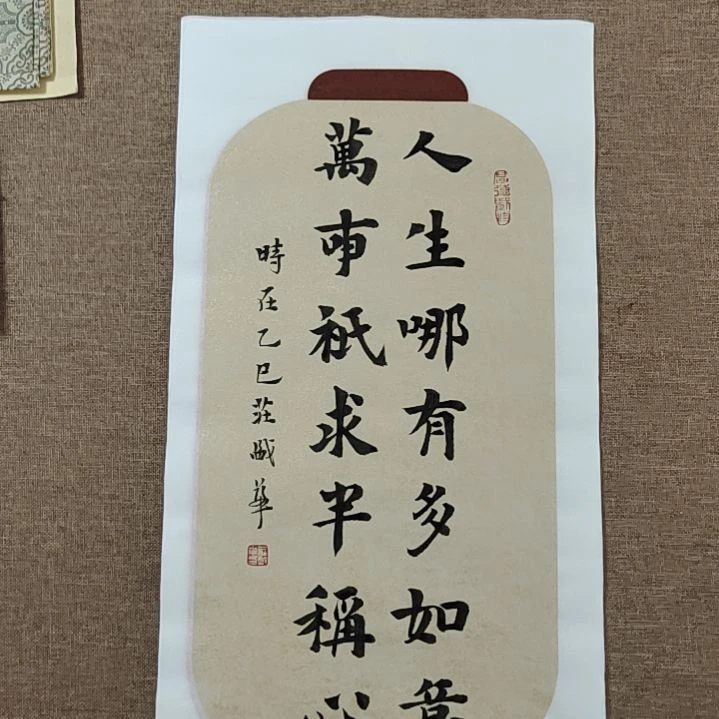 人生哪有多如意
萬事祇求半稱心
時在乙巳莊國華